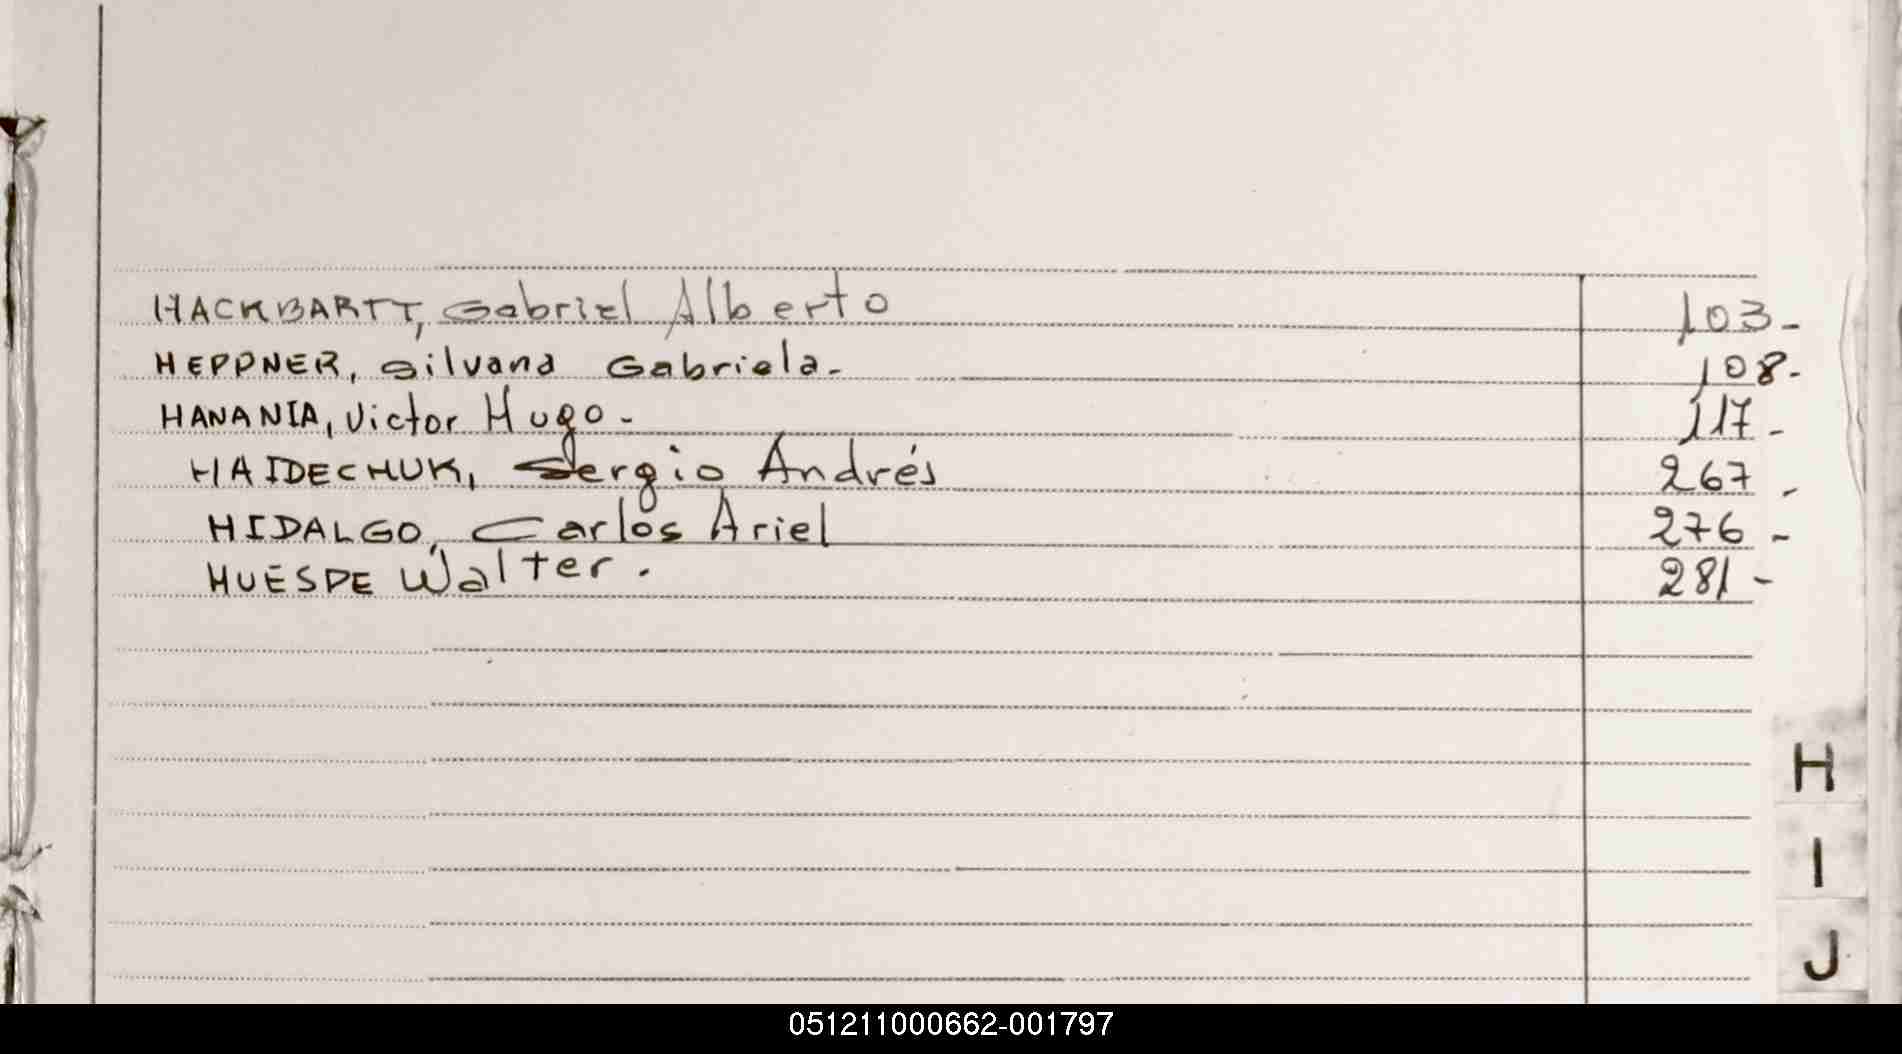 HACKBARTT, Gabriel Alberto 103-
HEPPNER, Silvana Gabriela- 108-
HANANIA, Victor Hugo- 117-
HAIDECHUK, Sergio Andrés 267-
HIDALGO, Carlos Ariel 276-
HUESPE Walter. 281-
H
I
J
051211000662-001797